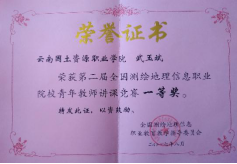 荣誉证书
云南国土资源职业学院 武玉斌
荣获第二届全国测绘地理信息职业
院校青年教师讲课竞赛 一等奖。
特发此证，以资鼓励。
全国测绘地理信息
职业教育教学指导委员会